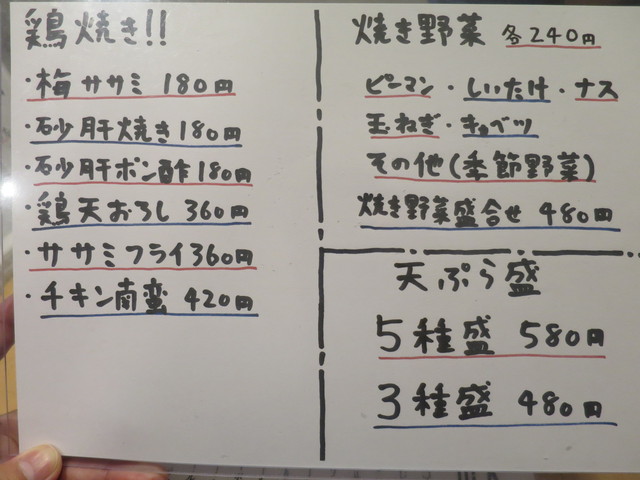 鶏焼き!!
・梅ササミ 180円
・砂肝焼き180円
・砂肝ポン酢180円
・鶏天おろし 360円
・ササミフライ360円
・チキン南蛮 420円
焼き野菜 各240円
ピーマン・しいたけ・ナス
玉ねぎ・キャベツ
その他(季節野菜)
焼き野菜盛合せ 480円
天ぷら盛
5種盛 580円
3種盛 480円